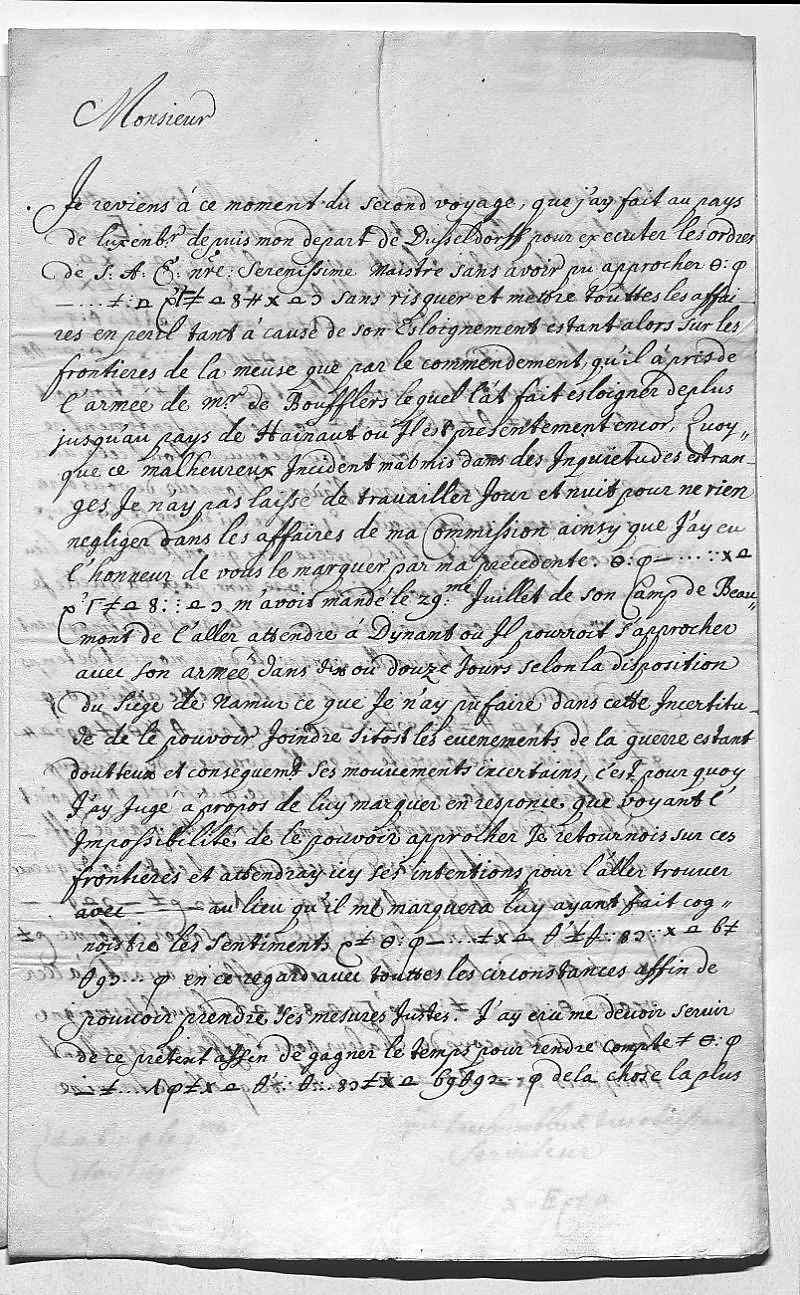 Monsieur
Je reviens à ce moment du second voyage, que j'ay fait au pays
de Luxenb.r depuis mon depart de Dusseldorff pour executer les ordres
de S: A: E: nre: Serenissime maistre sans avoir pu approcher
sans risquer et mettre touttes les affai
res en peril tant à cause de son Esloignement estant alors sur les
frontieres de la meuse que par le commendement, qu'il à pres de
l'armée de mr. de Boufflers lequel l'at fait esloigner de plus
jusqu'au pays de Hainaut ou Il est presentement encor, Quoy„
que ce malheureux Incident m'at mis dans des Inquietudes estran–
ges Je n'ay pas laissé de travailler Jour et nuit pour ne rien
negliger dans les affaires de ma Commission ainsy que J'ay eu
l'honneur de vous le marquer par ma precedente.
m'avoit mandé le 29.me Juillet de son Camp de Beau„
mont de l'aller attendre à Dynant ou Il pourroit s'approcher
avec son armeé dans dix ou douze Jours selon la disposition
du Siege de Namur ce que Je n'ay pu faire dans cette Incertitu–
de de le pouvoir Joindre sitost les evenements de la guerre estant
doutteux et consequem.t ses mouvements incertains, c'est pour quoy
J'ay Jugé a propos de luy marquer en responce, que voyant l'
Impossibilité de le pouvoir approcher Je retournois sur ces
frontieres et attendray icy ses intentions pour l'aller trouver
avec au lieu qu'il me marquera luy ayant fait cog=
noistre les sentiments
en ce regard avec touttes les circonstances affin de
pouvoir prendre ses mesures Justes. J'ay cru me devoir servir
de ce pretext affin de gagner le temps pour rendre compte
de la chose la plus